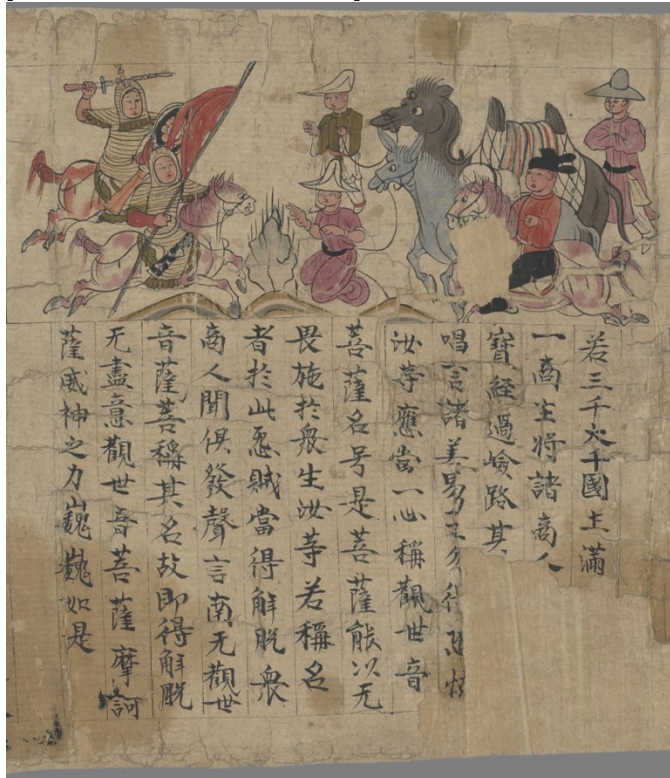 若三千大千國土滿
一商主將諸商人
寶經過嶮路其
唱言諸善男子勿得恐怖
汝等應當一心稱觀世音
菩薩名号是菩薩能以无
畏施於衆生汝等若稱名
者於此惡賊當得解脫衆
商人聞俱發聲言南无觀世
音薩菩稱其名故即得解脫
无盡意觀世音菩薩摩訶
薩威神之力巍巍如是